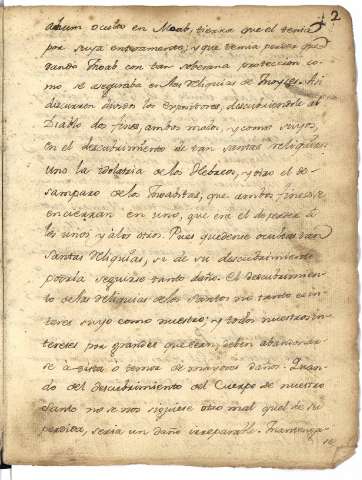 2
oculto en Moab, tierra que el tenia
por suya enteramente; y que temia perder que
dando Moab con tan soberana proteccion co-
mo se aseguraba en las Reliquias de Moyses. Asi
discurren divinos los Expositores, descubriendole al
Diablo dos fines, ambos malos, y como suyos,
en el descubrimiento de tan santas reliquias:
uno la idolatria de los Hebreos, y otro el de-
samparo de los Moabitas, que ambos fines se
encierran en uno, que era el de perder à
los unos, y à los otros. Pues quedense ocultas tan
santas Reliquias, si de su descubrimiento
podria seguirse tanto daño. El descubrimien-
to de las reliquias de los Santos no tanto es in-
teres suyo como nuestro; y todos nuestros in-
tereses por grandes que sean, deben abandonar-
se à vista o temor de mayores daños. Quan-
do del descubrimiento del Cuerpo de nuestro
Santo no se nos siguiese otro mal que el de su
perdida, seria un daño irreparable.